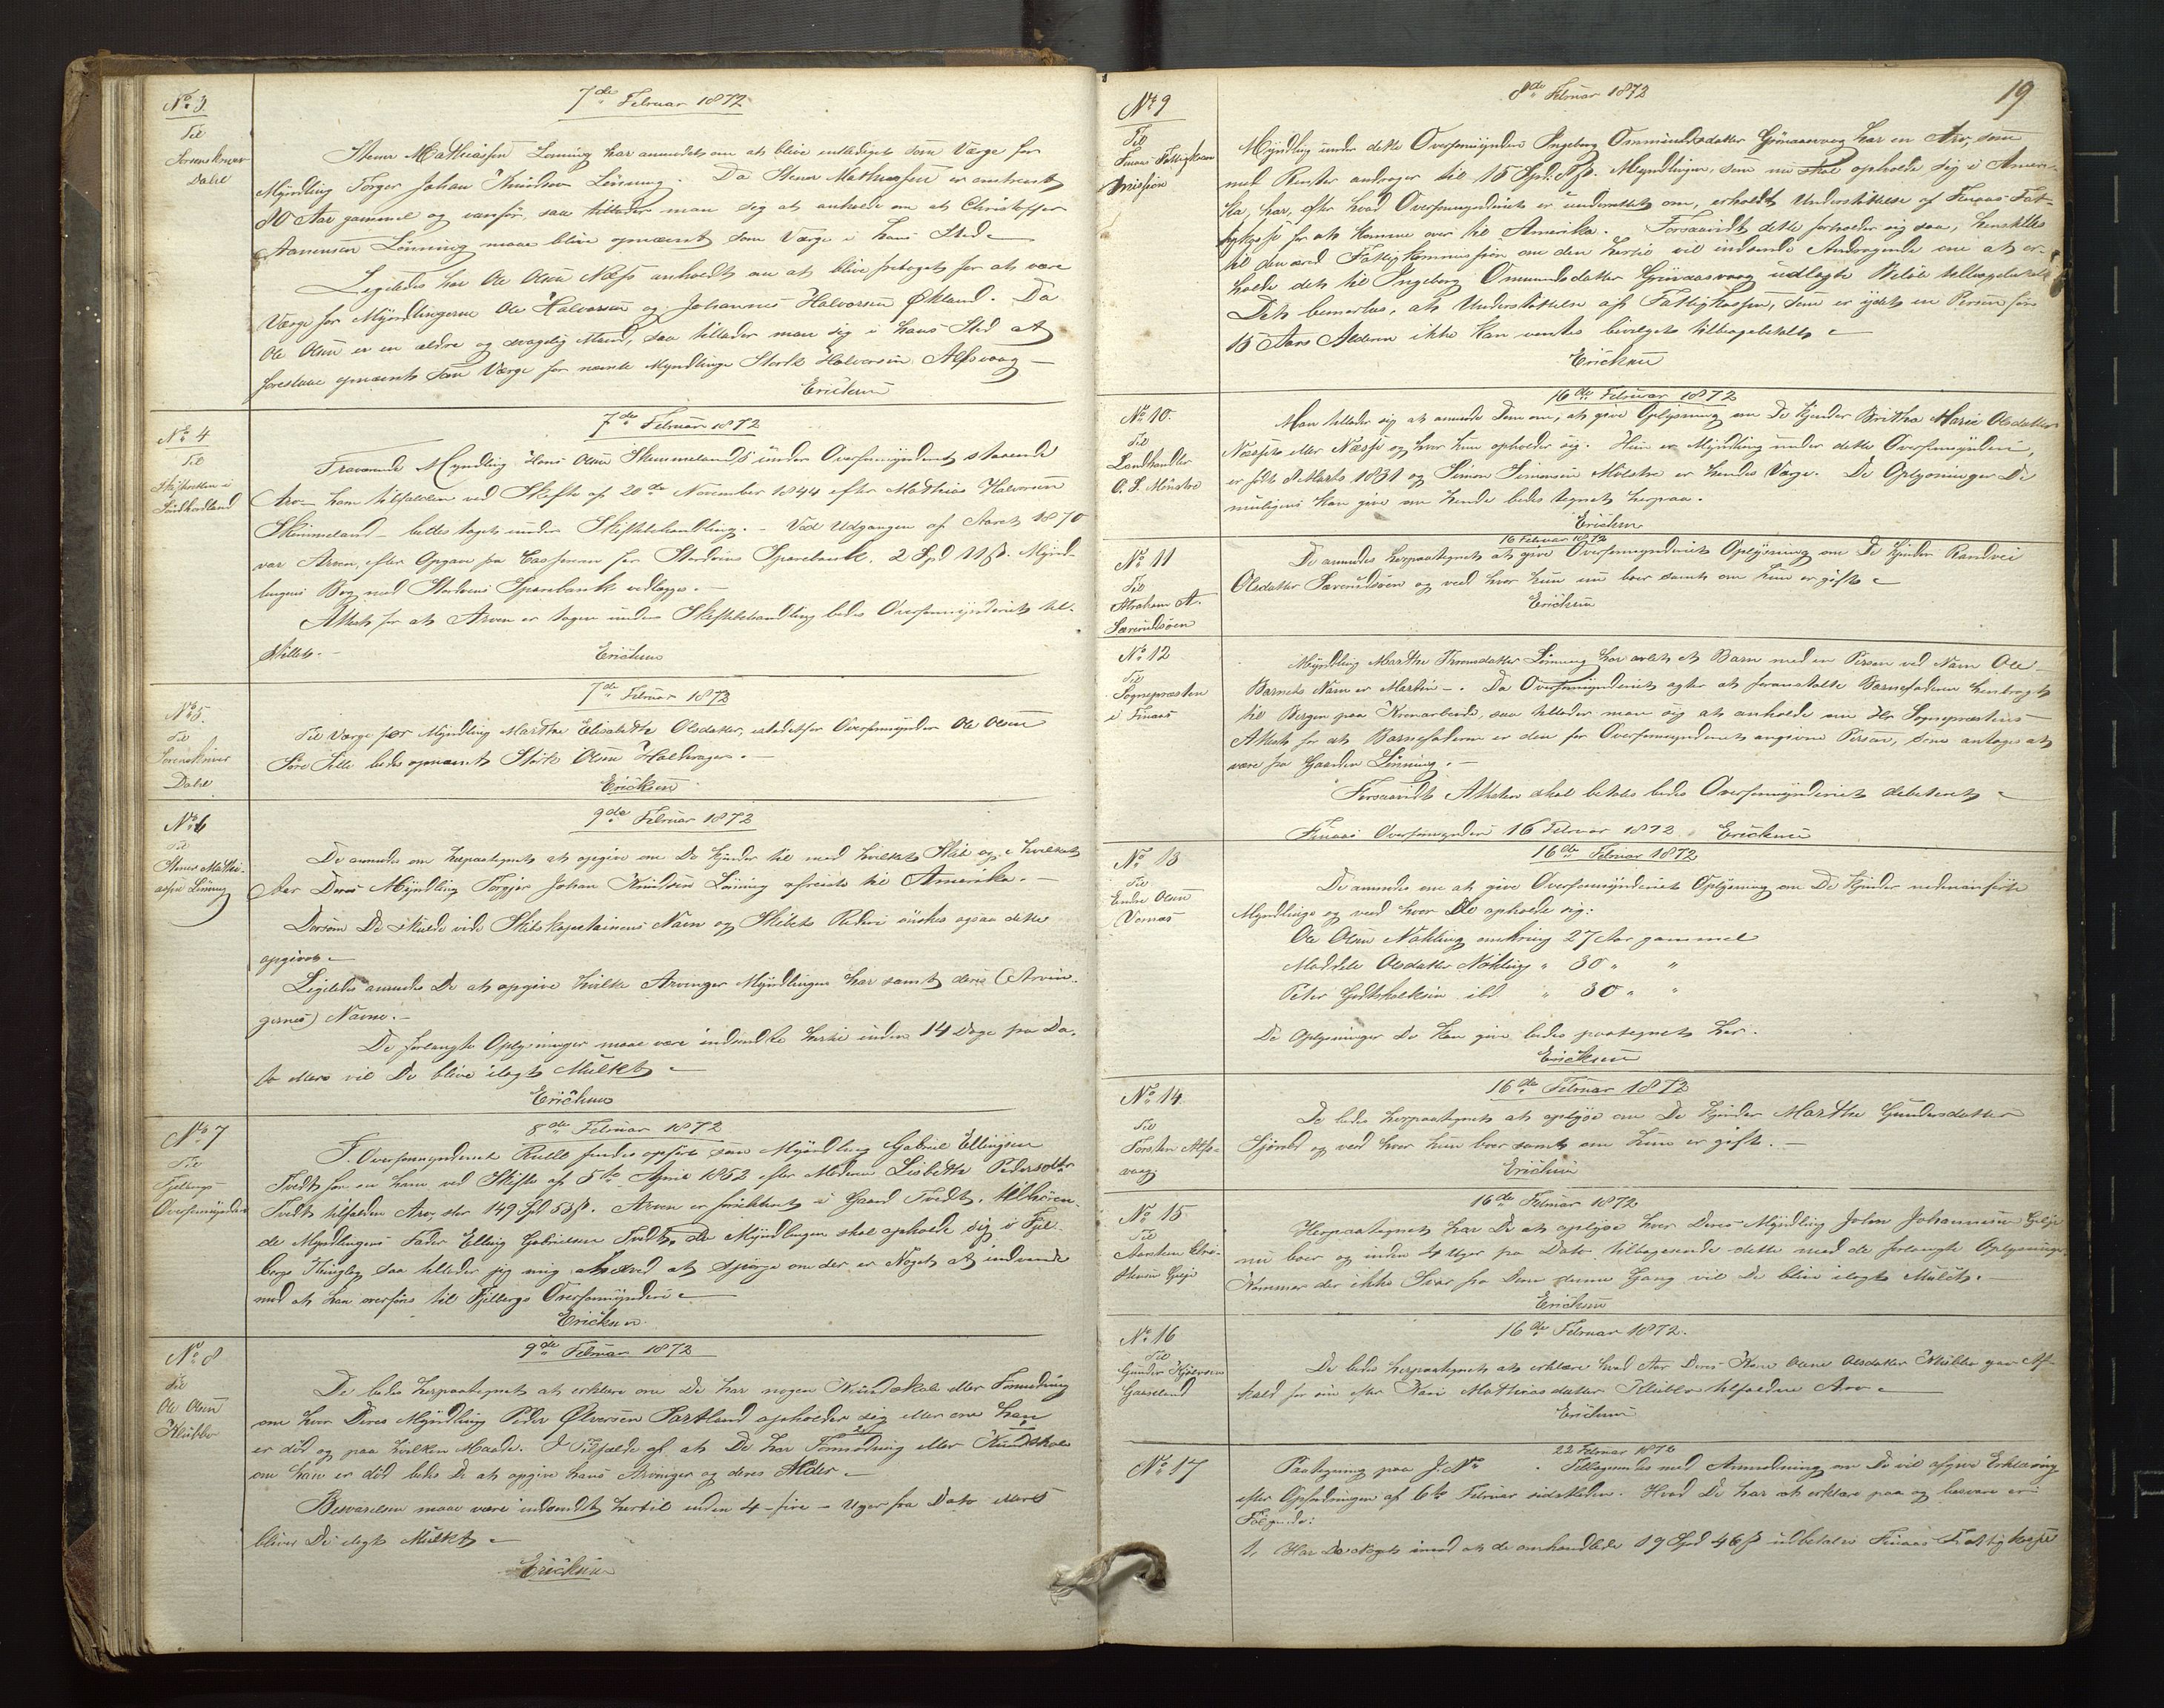 7de Februar 1872
No 3
Til
Sorenskriver
Dahl
Stener Mathiassen Lønning har anmodet om at blive entlediget som Værge for
Myndling Torger Johan Knudsen Lønning. Da Stener Mathiassen er omtrent
80 Aar gammel og vanfør, saa tillader man sig at anholde om at Christoffer
Aamunsen Lønning maa blive opnævnt som Værge i hans Sted
Ligeledes har Ole Olsen Næss anholdt om at blive fritaget for at være
Værge for Myndlingerne Ole Halvorsen og Johannes Halvorsen Økland. Da
Ole Olsen er en ældre og svagelig Mand, saa tillader man sig i hans Sted at
foreslaae opnævnt som Værge for nævnte Myndlinge Halvorsen Alfsvaag
Ericksen
7de Februar 1872
No 4
Til
Skifteretten i
Søndhordland
Fraværende Myndling Hans Olsen Skimmelands under Overformynderiet staaende
Arv – ham tilfalden ved Skifte af 20de November 1844 efter Mathias Halvorsen
Skimmeland – bedes taget under Skiftebehandling. – Ved Udgangen af Aaret 1870
var Arven, efter Opgave fra Casserer for Stordøens Sparebank, 2 Spd 11 ß. Mynd-
lingens Bog med Stordøens Sparebank vedlægges. –
Attest for at Arven er tagen under Skiftebehandling bedes Overformynderiet til-
stillet. –
Ericksen
7de Februar 1872
No 5.
Til
Sorenskriver
Dahl
Til Værge for Myndling Marthe Elisabethe Olsdatter, istedetfor Overformynder Ole Olsen
bedes opnævnt Olsen –
Ericksen
9de Februar 1872
No 6
Til
Stener Mathi-
assen Lønning
De anmodes om herpaategnet at opgive om De kjender til med hvilket Skib og i hvilket
Aar Deres Myndling Torgjer Johan Knudsen Lønning afreiste til Amerika. –
Dersom De skulde vide Skibskapetainens Navn og Skibets Rederi ønskes ogsaa dette
opgivet –
Ligeledes anmodes De at opgive hvilke Arvinger Myndlingen har samt deres (Arvin-
gernes) Navne. –
De forlangte Oplysninger maae være indsendte hertil inden 14 Dage fra Da-
to ellers vil De blive ilagt Mulkt –
Ericksen
8de Februar 1872
No 7
Til
Fjelbergs
Overformynderi
I Overformynderiets Rulle findes opført som Myndling Gabriel Ellingsen
Tvedt for en ham ved Skifte af 5te April 1852 efter Moderen Lisbethe Pedersdtr
Tvedt tilfalden Arv, stor 149 Spd 53 ß. Arven er forsikkret i Gaard Tvedt, tilhøren-
de Myndlingens Fader Elling Gabrielsen Tvedt. Da Myndlingen skal opholde sig i Fjel-
bergs Thinglag saa tillader jeg mig at spørge om der er Noget at indvende
mod at han overføres til Fjelbergs Overformynderi –
Ericksen
9de Februar 1872
No 8
Til
Ole Olsen
Klubben
De bedes herpaategnet at erklære om De har nogen Kundskab eller Formodning
om hvor Deres Myndling Peder Ølversen opholder sig eller om han
er død og paa hvilken Maade. I Tilfælde af at De har Formodning eller Kundskab
om han er død bedes De at opgive hans Arvinger og deres Alder –
Besvarelsen maae være indsendt hertil inden 4 – fire – Uger fra Dato ellers
bliver De ilagt Mulkt –
Ericksen
19
8de Februar 1872
No 9
Til
Finaas Fattigkom-
mission
Myndling under dette Overformynderi Ingeborg Ommundsdatter har en Arv, som
med Renter andrager til 15 Spd. Myndlingen, som nu skal opholde sig i Ameri-
ka, har, efter hvad Overformynderiet er underrettet om, erholdt Understøttelse af Finaas Fat-
tigkasse for at komme over til Amerika. Forsaavidt dette forholder sig saa, henstilles
til den ærede Fattigkommission om den hertil vil indsende Andragende om at er-
holde det til Ingeborg Omundsdatter udlagte Beløb tilbagebetalt
Det bemærkes, at Understøttelse af Fattigkassen, som er ydet en Person før
15 Aars Alderen ikke kan ventes bevilget tilbagebetalt –
Ericksen
16de Februar 1872
No 10.
Til
Landhandler
O. S. Mønstre
Man tillader sig at anmode Dem om, at give Oplysning om De kjender Britha Marie Olsdatter
Næsset eller Næss og hvor hun opholder sig. Hun er Myndling under dette Overformynderi,
er født Marts 1831 og Simon Simonsen er hendes Værge. De Oplysninger De
muligens kan give om hende bedes tegnet herpaa.
Ericksen
16 Februar 1872
No 11
Til
Abraham A.
De anmodes herpaategnet at give Overformynderiet Oplysning om De kjender Randvei
Olsdatter og ved hvor hun nu boer samt om hun er gift –
Ericksen
No 12
Til
Sognepresten
i Finaas
Myndling Marthe Lønning har avlet et Barn med en Person ved Navn Ole –
Barnets Navn er Martin –. Da Overformynderiet agter at foranstalte Barnefaderen henbragt
til Bergen paa Kronarbeide, saa tillader man sig at anholde om Hr. Sogneprestens
Attest for at Barnefaderen er den for Overformynderiet angivne Person, som antages at
være fra Gaarden Lønning. –
Forsaavidt Attesten skal betales bedes Overformynderiet debiteret –
Finaas Overformynderi 16 Februar 1872. Ericksen
16de Februar 1872
No 13
Til
Endre Olsen
Vornæs
De anmodes om at give Overformynderiet Oplysning om De kjender nedenanførte
Myndlinge og veed hvor De opholde sig:
Ole Olsen Nøkling omkring 27 Aar gammel
Madele Olsdatter Nøkling " 30 " "
Peter Godtskalksen ibd " 30 " "
De Oplysninger De kan give bedes paategnet her.
Ericksen
16de Februar 1872
No 14
Til
Torsten Alfs-
vaag
De bedes herpaategnet at oplyse om De kjender Marthe Gundersdatter
og ved hvor hun boer samt om hun er gift. –
Ericksen
16de Februar 1872
No 15
Til
Herpaategnet har De at oplyse hvor Deres Myndling John Johannesen
nu boer og inden 4 Uger fra Dato tilbagesende dette med de forlangte Oplysninger.
Kommer der ikke Svar fra Dem denne Gang vil De blive ilagt Mulct. –
Ericksen
16de Februar 1872.
No 16
Til
Gunder
De bedes herpaategnet at erklære hvad Aar Deres Kone Olsdatter Klubben gav Af-
kald for sin efter Kari Mathiasdatter Klubben tilfaldne Arv –
Ericksen
22 Februar 1872
No 17
Paategning paa J. No . Tilbagesendes med Anmodning om De vil afgive Erklæring
efter Opfordringen af 6te Februar sidstleden. Hvad De har at erklære paa og besvare er
Følgende:
1, Har De Noget imod at de omhandlede 19 Spd 46 ß udbetales Finaas Fattigkasse